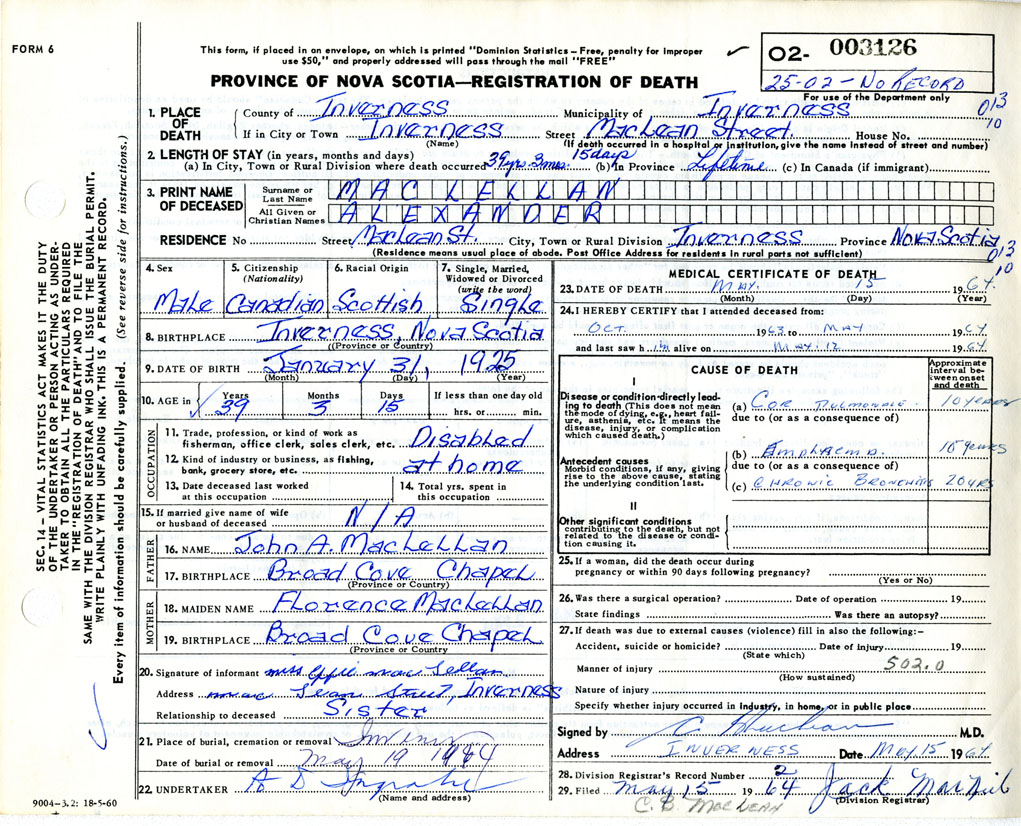 FORM 6
This form, if placed in an envelope, on which is printed "Dominion Statistics – Free, penalty for improper
use $50," and properly addressed will pass through the mail "FREE"
02- 003126
25-02 – No Record
For use of the Department only
PROVINCE OF NOVA SCOTIA—REGISTRATION OF DEATH
013
10
1. PLACE OF DEATH
County of Inverness Municipality of Inverness
If in City or Town Inverness Street MacLean Street. House No.
(Name) (If death occurred in a hospital or institution, give the name instead of street and number)
2. LENGTH OF STAY (in years, months and days)
(a) In City, Town or Rural Division where death occurred 39 yrs. 3 mos. 15 days (b) In Province Lifetime (c) In Canada (if immigrant)
3. PRINT NAME OF DECEASED
Surname or Last Name MAC LELLAN
All Given or Christian Names ALEXANDER
RESIDENCE No Street MacLean St. City, Town or Rural Division Inverness Province Nova Scotia
(Residence means usual place of abode. Post Office Address for residents in rural parts not sufficient)
013
10
4. Sex Male
5. Citizenship (Nationality) Canadian
6. Racial Origin Scottish
7. Single, Married, Widowed or Divorced (write the word) Single
8. BIRTHPLACE Inverness, Nova Scotia
((Province or Country)
9. DATE OF BIRTH January 31, 1925
(Month) (Day) (Year)
10. AGE in Years 39 Months 3 Days 15 If less than one day old hrs. or min.
OCCUPATION
11. Trade, profession, or kind of work as fisherman, office clerk, sales clerk, etc. Disabled
12. Kind of industry or business, as fishing, bank, grocery store, etc. at home
13. Date deceased last worked at this occupation
14. Total yrs. spent in this occupation
15. If married give name of wife or husband of deceased N/A
FATHER
16. NAME John A. MacLellan
17. BIRTHPLACE Broad Cove Chapel
(Province or Country)
MOTHER
18. MAIDEN NAME Florence MacLellan
19. BIRTHPLACE Broad Cove Chapel
(Province or Country)
20. Signature of informant Miss Effie Mac Lellan
Address Mac Lean Street, Inverness
Relationship to deceased Sister
21. Place of burial, cremation or removal Inverness
Date of burial or removal May 19 1964
22. UNDERTAKER A D
(Name and address)
9004-3.2: 18-5-60
MEDICAL CERTIFICATE OF DEATH
23. DATE OF DEATH May 15 1964
(Month) (Day) (Year)
24. I HEREBY CERTIFY that I attended deceased from:
Oct. 1963 to May 1964
and last saw him alive on May 12 1964
CAUSE OF DEATH
Approximate interval between onset and death
I
Disease or condition directly leading to death (This does not mean the mode of dying, e.g., heart failure, asthenia, etc. It means the disease, injury, or complication which caused death.)
(a) Cor Pulmonale 10 years
due to (or as a consequence of)
Antecedent causes
Morbid conditions, if any, giving rise to the above cause, stating the underlying condition last.
(b) Emphysema 15 years
due to (or as a consequence of)
(c) Chronic Bronchitis 20 yrs
II
Other significant conditions
contributing to the death, but not related to the disease or condition causing it.
25. If a woman, did the death occur during
pregnancy or within 90 days following pregnancy?
(Yes or No)
26. Was there a surgical operation? Date of operation 19
State findings Was there an autopsy?
27. If death was due to external causes (violence) fill in also the following:–
Accident, suicide or homicide? Date of injury 19
(State which)
502.0
Manner of injury
(How sustained)
Nature of injury
Specify whether injury occurred in industry, in home, or in public place
Signed by M.D.
Address Inverness Date May 15 1964
28. Division Registrar's Record Number 2
29. Filed May 15 1964 Jack MacNeil
(Division Registrar)
C. B. MacLean
SEC. 14 – VITAL STATISTICS ACT MAKES IT THE DUTY
OF THE UNDERTAKER OR PERSON ACTING AS UNDER-
TAKER TO OBTAIN ALL THE PARTICULARS REQUIRED
IN THE "REGISTRATION OF DEATH" AND TO FILE THE
SAME WITH THE DIVISION REGISTRAR WHO SHALL ISSUE THE BURIAL PERMIT.
WRITE PLAINLY WITH UNFADING INK. THIS IS A PERMANENT RECORD.
Every item of information should be carefully supplied. (See reverse side for instructions.)